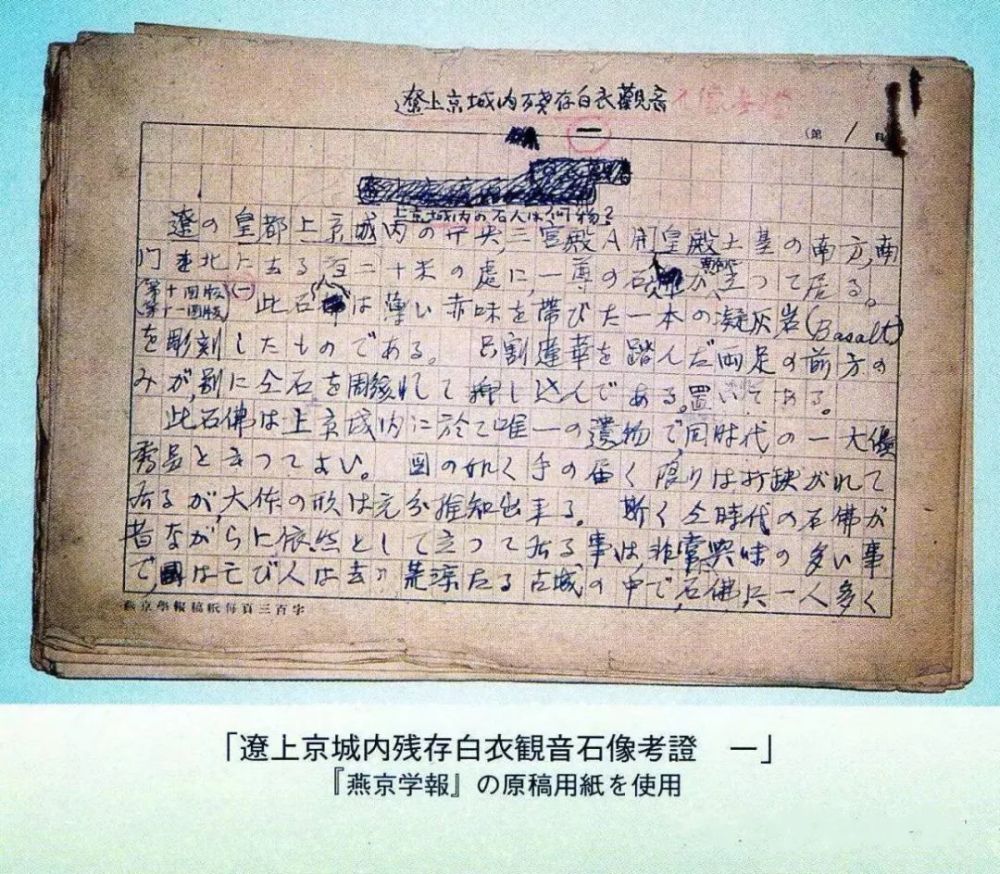 遼上京城内残存白衣觀音石像考證
一
(第 1 頁
上京城内の石人は何物?
遼の皇都上京城内の中央、三宮殿A開皇殿土基の南方,南
門を北に去る百二十米の處に,一尊の石が立つて居る。
(第十図版)
(第十一図版)
(一)
此石は薄い赤味を帯びた一本の凝灰岩(Basalt)
を彫刻したものである。只割蓮華を踏んだ両足の前方の
みが,別に仝石を周縁れして押し込んである。置いてある。
此石佛は上京城内に於て唯一の遺物で,同时代の一大優
秀品と云つてよい。図の如く手の届く限りは打缺がれて
居るが,大体の形は充分推知出来る。斯く仝時代の石佛が
昔ながらに依然として立つて居る事は,非常興味の多い事
で,國は亡び人は去り荒涼たる古城の中で,石佛只一人多く
燕京學報稿紙每頁三百字
「遼上京城内残存白衣観音石像考證 一」
『燕京学報』の原稿用紙を使用